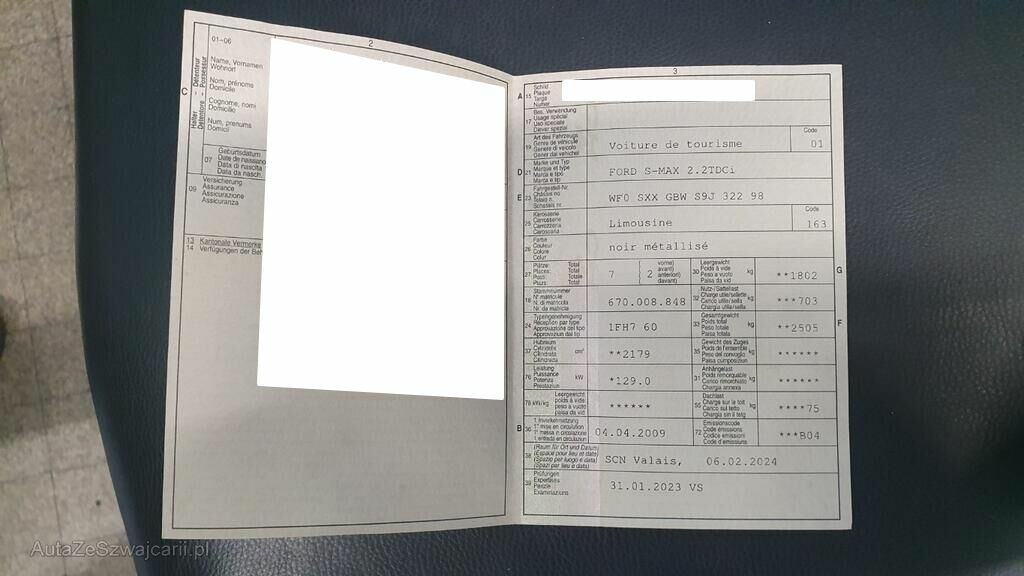 2
01-06
Name, Vornamen
Wohnort
Nom, prénoms
Domicile
Cognome, nomi
Domicilio
Num, prenums
Domicil
C
Halter – Détenteur
Detentore – Possessur
07
Geburtsdatum
Date de naissanc
Data di nascita
Data da nasch.
09
Versicherung
Assurance
Assicurazione
Assicuranza
13 Kantonale Vermerke
14 Verfügungen der Beh
3
A 15 Schild
Plaque
Targa
Numer
17 Bes. Verwendung
Usage spécial
Uso speciale
Diever spezial
19 Art des Fahrzeugs
Genre de véhicule
Genere di veicolo
Gener dal vehichel
Voiture de tourisme
Code
01
D 21 Marke und Typ
Marque et type
Marca e tipo
Marca e tip
FORD S-MAX 2.2TDCi
E 23 Fahrgestell-Nr.
Châssis no
Telaio n.
Schassis nr.
WF0 SXX GBW S9J 322 98
25 Karosserie
Carrosserie
Carrozzeria
Carossaria
Limousine
Code
163
26 Farbe
Couleur
Colore
Colur
noir métallisé
27 Plätze: Total
Places: Total
Posti: Totale
Plazs: Total
7
2
vorne)
avant)
anteriori)
davant)
30 Leergewicht
Poids à vide
Peso a vuoto
Paisa da vid
kg
**1802
G
18 Stammnummer
N° matricule
N. di matricola
Nr. da matricla
670.008.848
32 Nutz-/Sattellast
Charge utile/sellette
Carico utile/sella
Chargia utila/sella
kg
***703
24 Typengenehmigung
Réception par type
Approvazione del tipo
Approvaziun dal tip
1FH7 60
33 Gesamtgewicht
Poids total
Peso totale
Paisa totala
kg
**2505
F
37 Hubraum
Cylindrée
Cilindrata
Cilindrada
cm³
**2179
35 Gewicht des Zuges
Poids de l'ensemble
Peso del convoglio
Paisa cumposiziun
kg
******
76 Leistung
Puissance
Potenza
Prestaziun
kW
*129.0
31 Anhängelast
Poids remorquable
Carico rimorchiato
Chargia annexa
kg
******
78 kW/kg
Leergewicht
poids à vide
peso a vuoto
paisa da vid
******
55 Dachlast
Charge sur le toit
Carico sul tetto
Chargia sin il tetg
kg
****75
B 36 1. Inverkehrsetzung
1re mise en circulation
1a messa in circolazione
1. entrada en circulaziun
04.04.2009
72 Emissionscode
Code émissions
Codice emissioni
Code d'emissiuns
***B04
38 (Raum für Ort und Datum)
(Espace pour lieu et date)
(Spazio per luogo e data)
(Spazi per lieu e data)
SCN Valais, 06.02.2024
39 Prüfungen
Expertises
Perizie
Examinaziuns
31.01.2023 VS
AutaZeSzwajcarii.pl